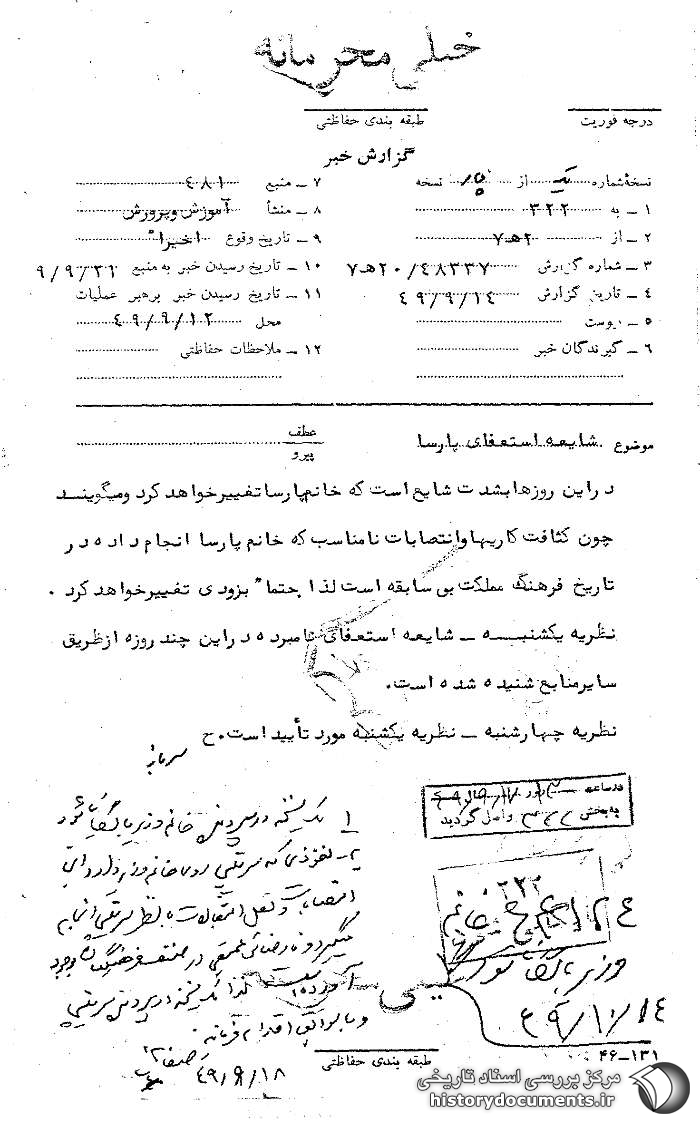 خیلی محرمانه
درجه فوریت
طبقه بندی حفاظتی
گزارش خبر
نسخهٔ شماره یک از چهار نسخه
۱ ـ به ۳۲۲
۲ ـ از ۲۰ ه‍ ۷
۳ ـ شماره گزارش ۷ه‍۲۰/۴۸۳۳۷
۴ ـ تاریخ گزارش ۴۹/۹/۱۴
۵ ـ پیوست
۶ ـ گیرندگان خبر
۷ ـ منبع ۴۸۱
۸ ـ منشأ آموزش وپرورش
۹ ـ تاریخ وقوع اخیرا"
۱۰ ـ تاریخ رسیدن خبر به منبع
۱۱ ـ تاریخ رسیدن خبر برهبر عملیات
محل ۴۹/۹/۱۲
۱۲ ـ ملاحظات حفاظتی
موضوع شایعه استعفای پارسا
عطف
پیرو
در این روزها بشدت شایع است که خانم پارسا تغییر خواهد کرد و میگویند
چون کثافت کاریها و انتصابات نامناسب که خانم پارسا انجام داده در
تاریخ فرهنگ مملکت بی سابقه است لذا حتما" بزودی تغییر خواهد کرد .
نظریه یکشنبه ـ شایعه استعفای نامبرده در این چند روزه از طریق
سایر منابع شنیده شده است.
نظریه چهارشنبه ـ نظریه یکشنبه مورد تأیید است. ح
در ساعت روز
به بخش ۳۲۲ واصل گردید
۱ـ یک نسخه در پرونده خانم وزیر بایگانی شود
۲ـ نفوذی که روی خانم وزیر دارد
انتصابات و نقل انتقالات با نظر انجام
میگیرد و نارضائی عمیقی در صنف فرهنگیان بوجود
آورده لذا یک نسخه در پرونده
اقدام فرمائید
۴۹/۹/۱۸
۳۲۲
خانم
وزیر بایگانی شود
۴۹/۱۰/۱۴
طبقه بندی حفاظتی
۴۶ـ۱۳۱
مرکز بررسی اسناد تاریخی
historydocuments.ir